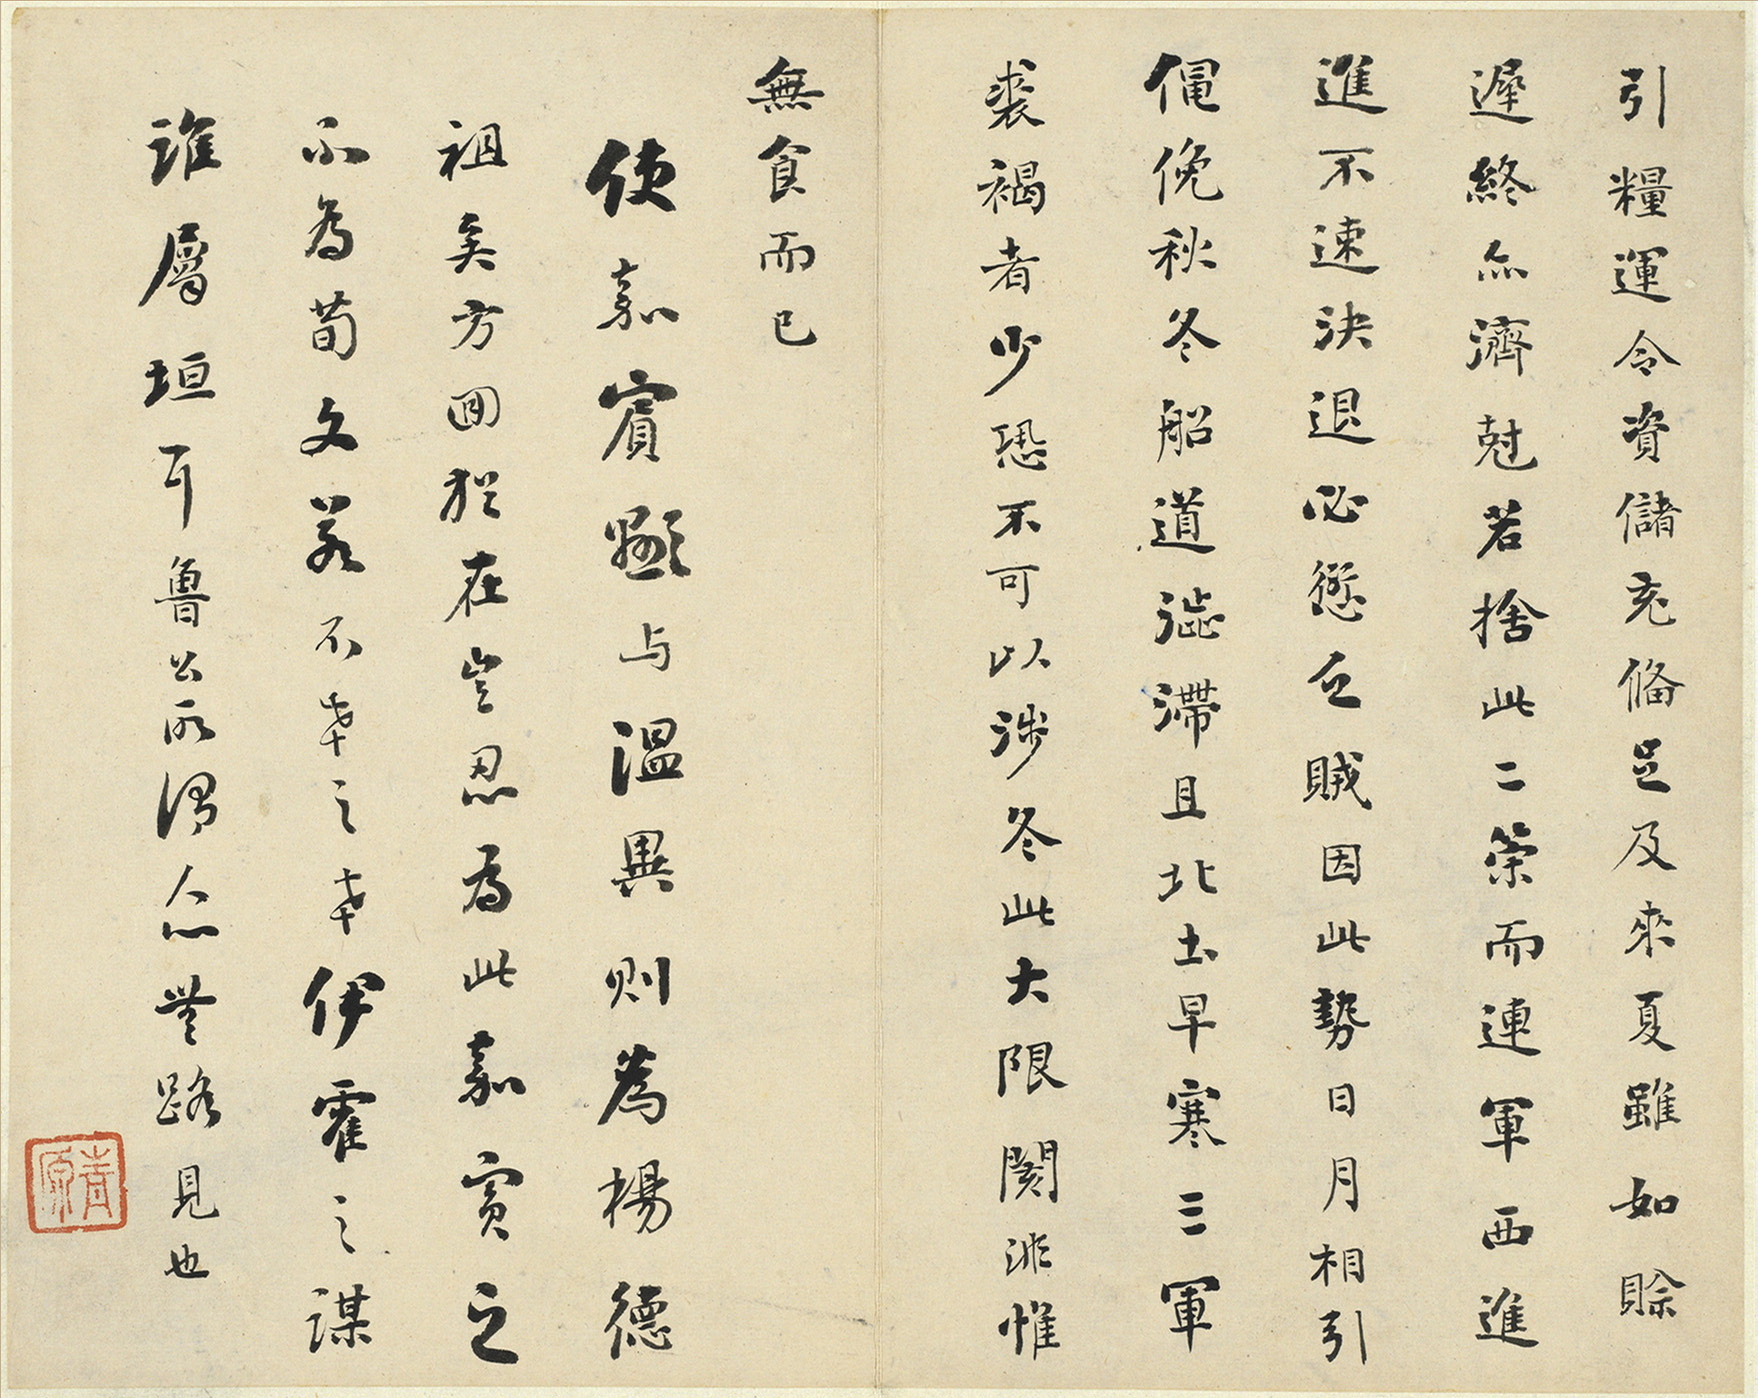 引糧運令資儲充備足及來夏雖如賒
遲終亦濟尅若捨此二策而連軍西進
進不速決退必愆乏賊因此勢日月相引
僶俛秋冬船道澁滯且北土早寒三軍
裘褐者少恐不可以涉冬此大限閡非惟
無食而已
使嘉賓顯与溫異則為楊德
祖矣方回猶在豈忍為此嘉賓之
不為荀文若不幸之幸伊霍之謀
誰屬垣耳魯公所得亦無路見也
青原